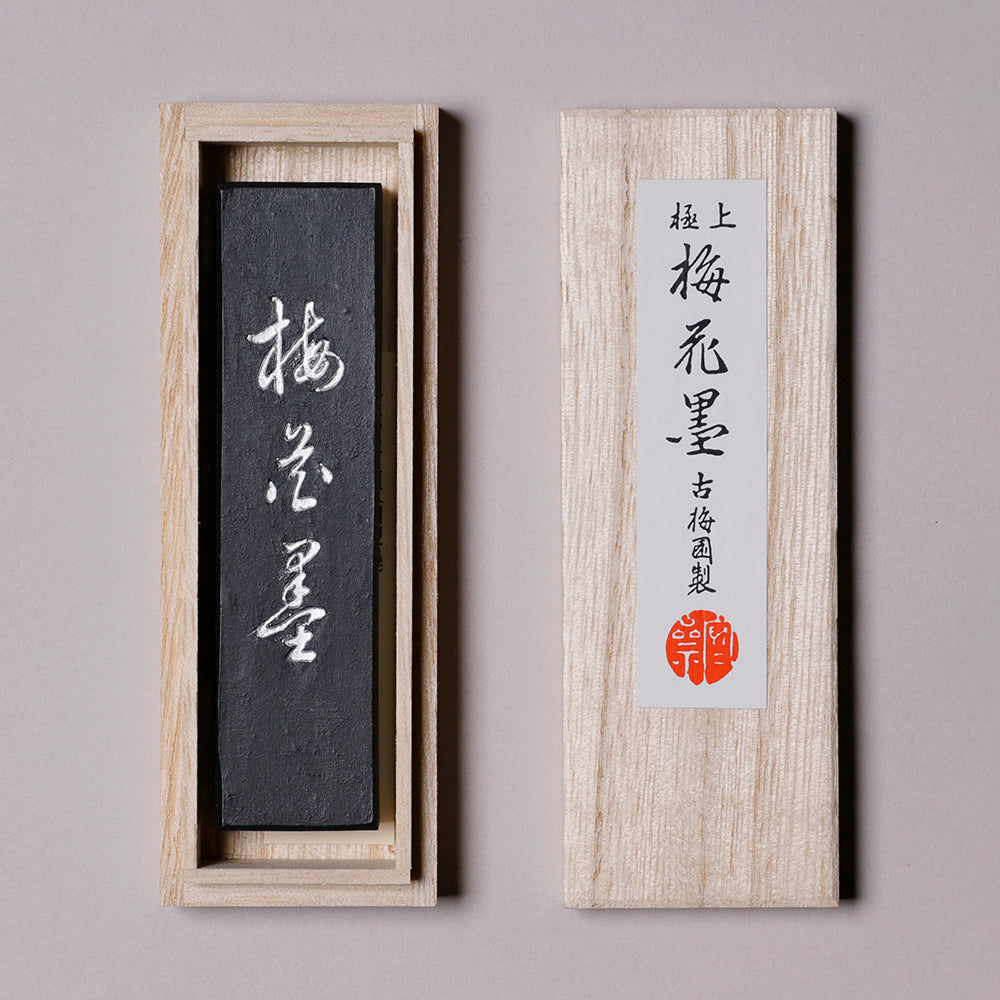 梅花墨
極上
梅花墨
古梅園製